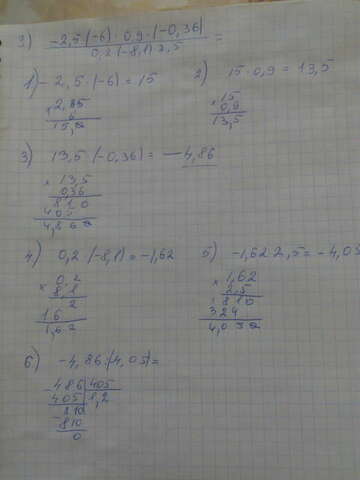 3) -2,5·(-6)·0,9·(-0,36) =
0,2·(-8,1)·2,5
1) -2,5·(-6) = 15
2) 15·0,9 = 13,5
× 2,5
6
15,0
× 15
0,9
13,5
3) 13,5·(-0,36) = -4,86
× 13,5
0,36
810
405
4,860
4) 0,2·(-8,1) = -1,62
5) -1,62·2,5 = -4,05
× 0,2
8,1
2
16
1,62
× 1,62
2,5
810
324
4,050
6) -4,86:(-4,05) =
- 486 | 405
405 | 1,2
- 810
810
0